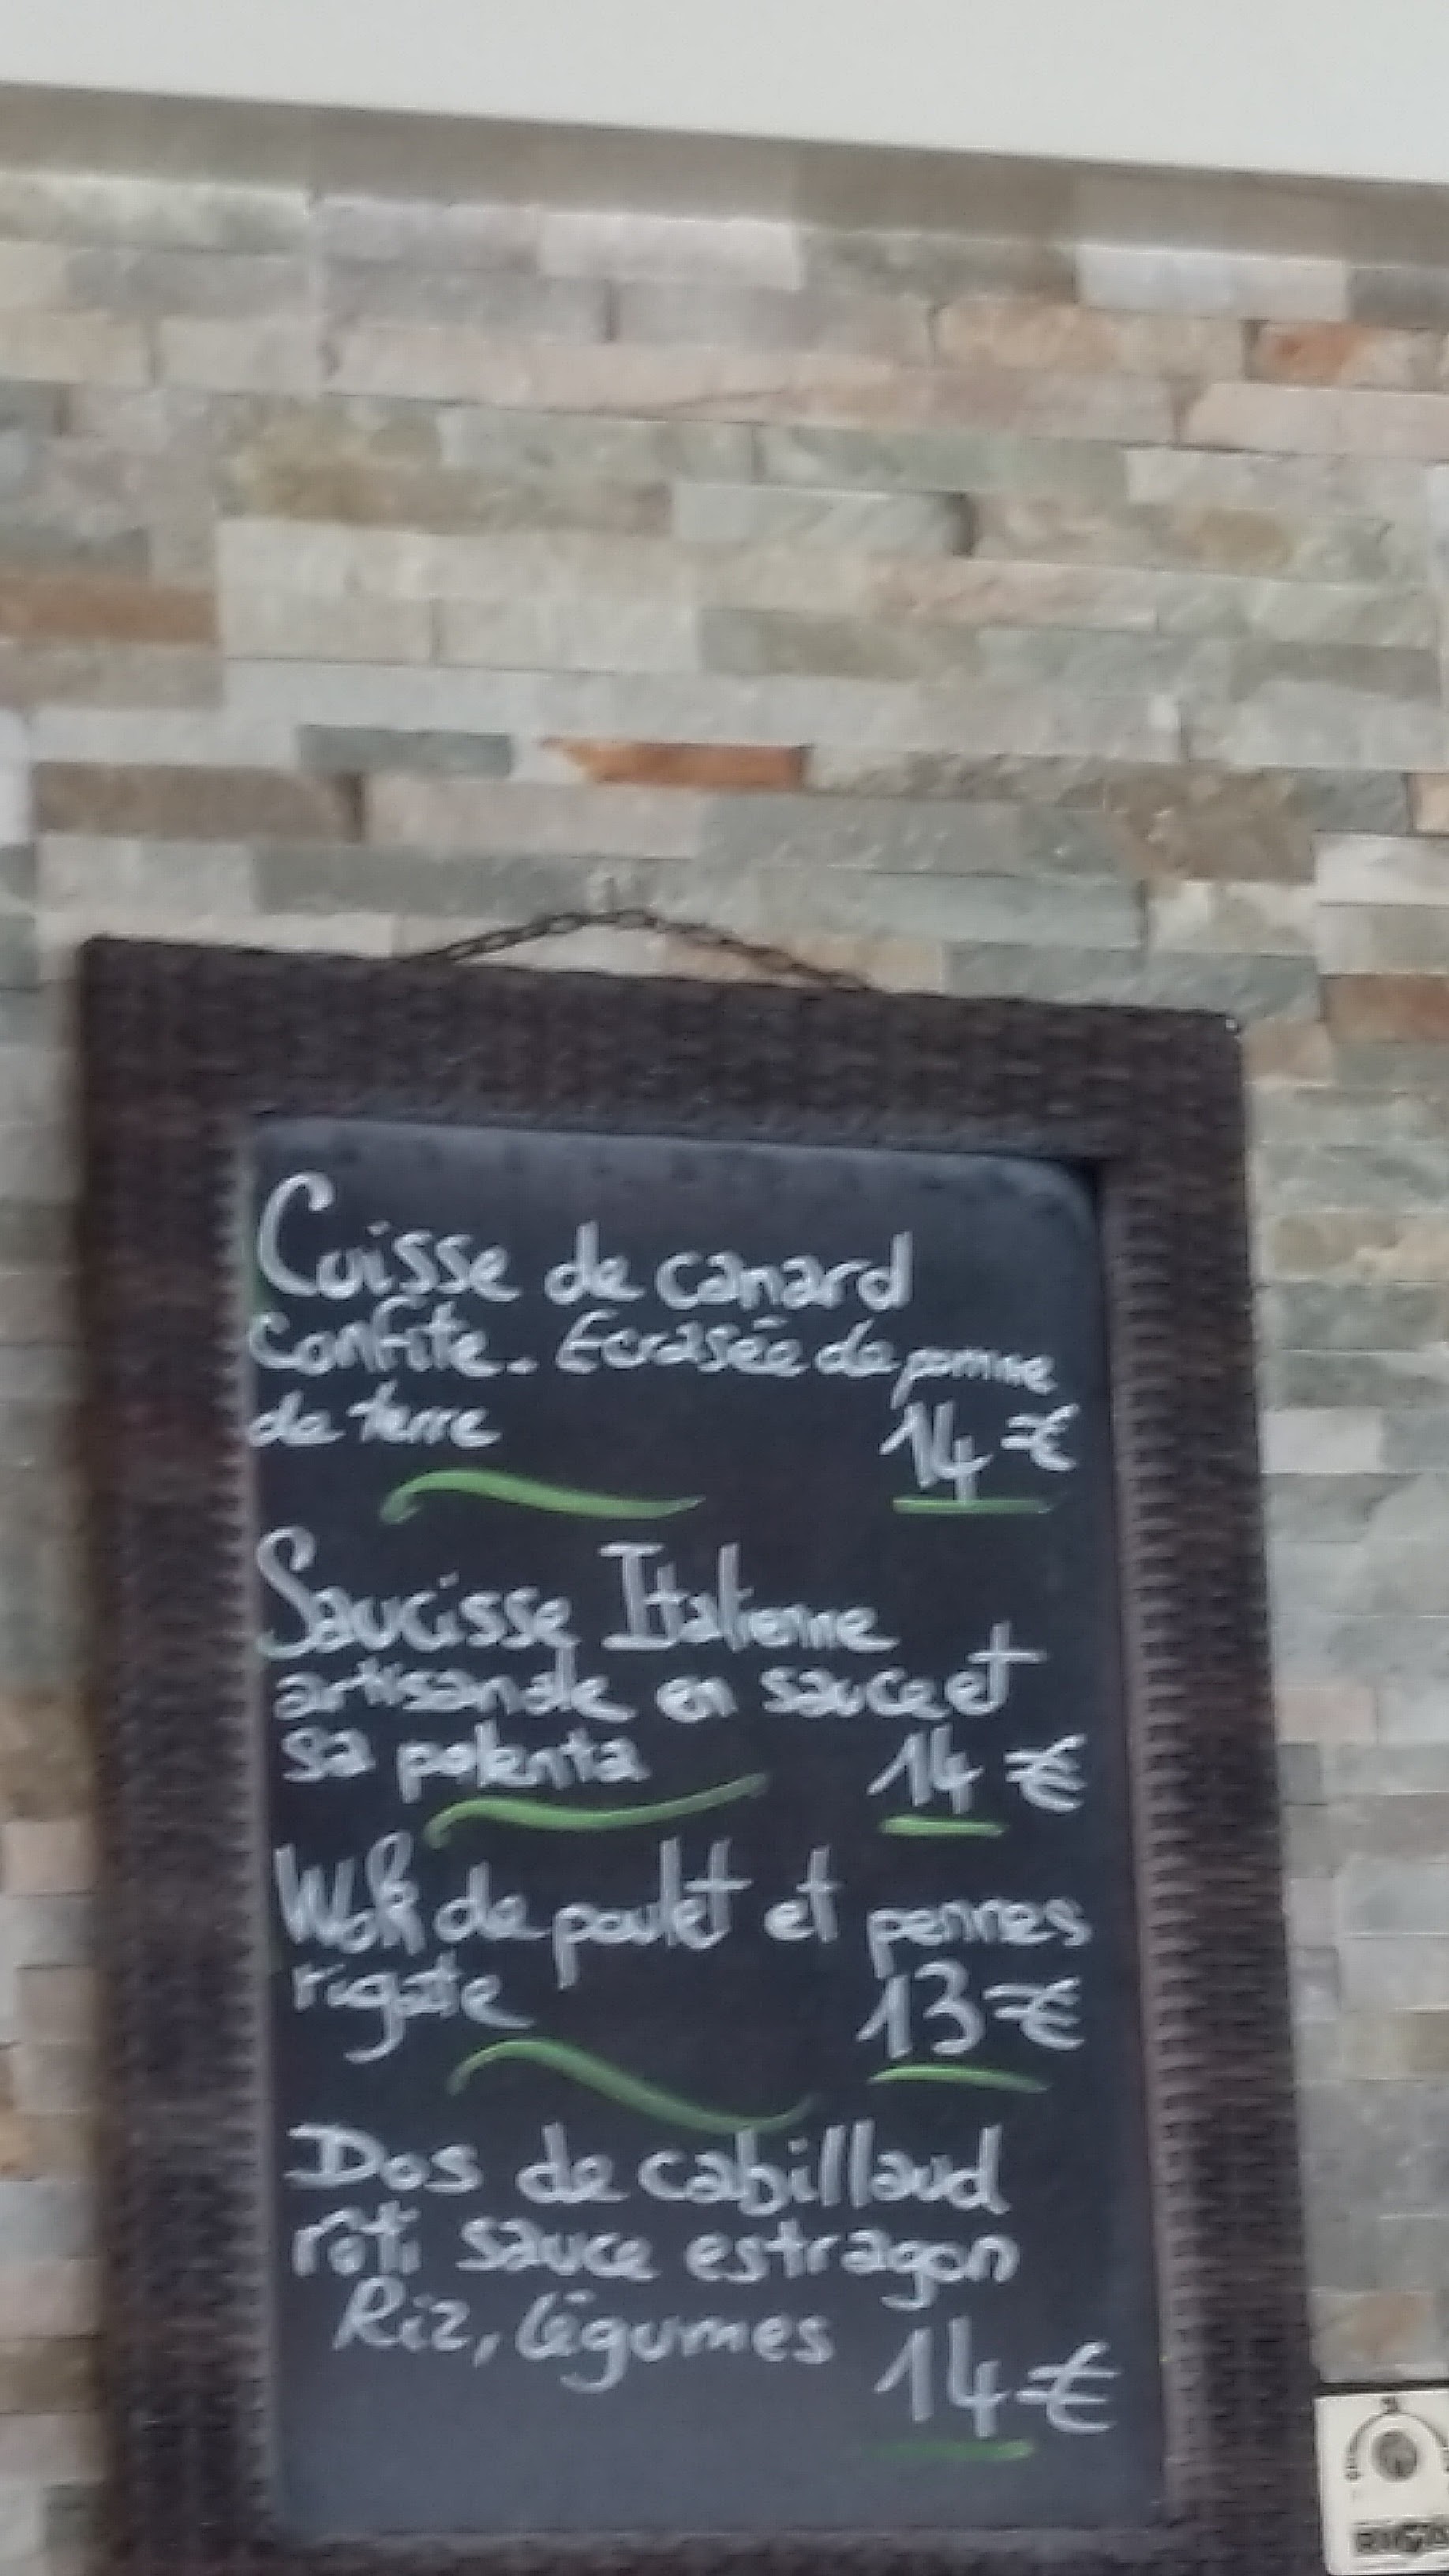 Cuisse de canard
confite. Ecrasée de pomme
de terre 14 €
Saucisse Italienne
artisanale en sauce et
sa polenta 14 €
Wok de poulet et pennes
rigate 13 €
Dos de cabillaud
rôti sauce estragon
Riz, légumes 14 €